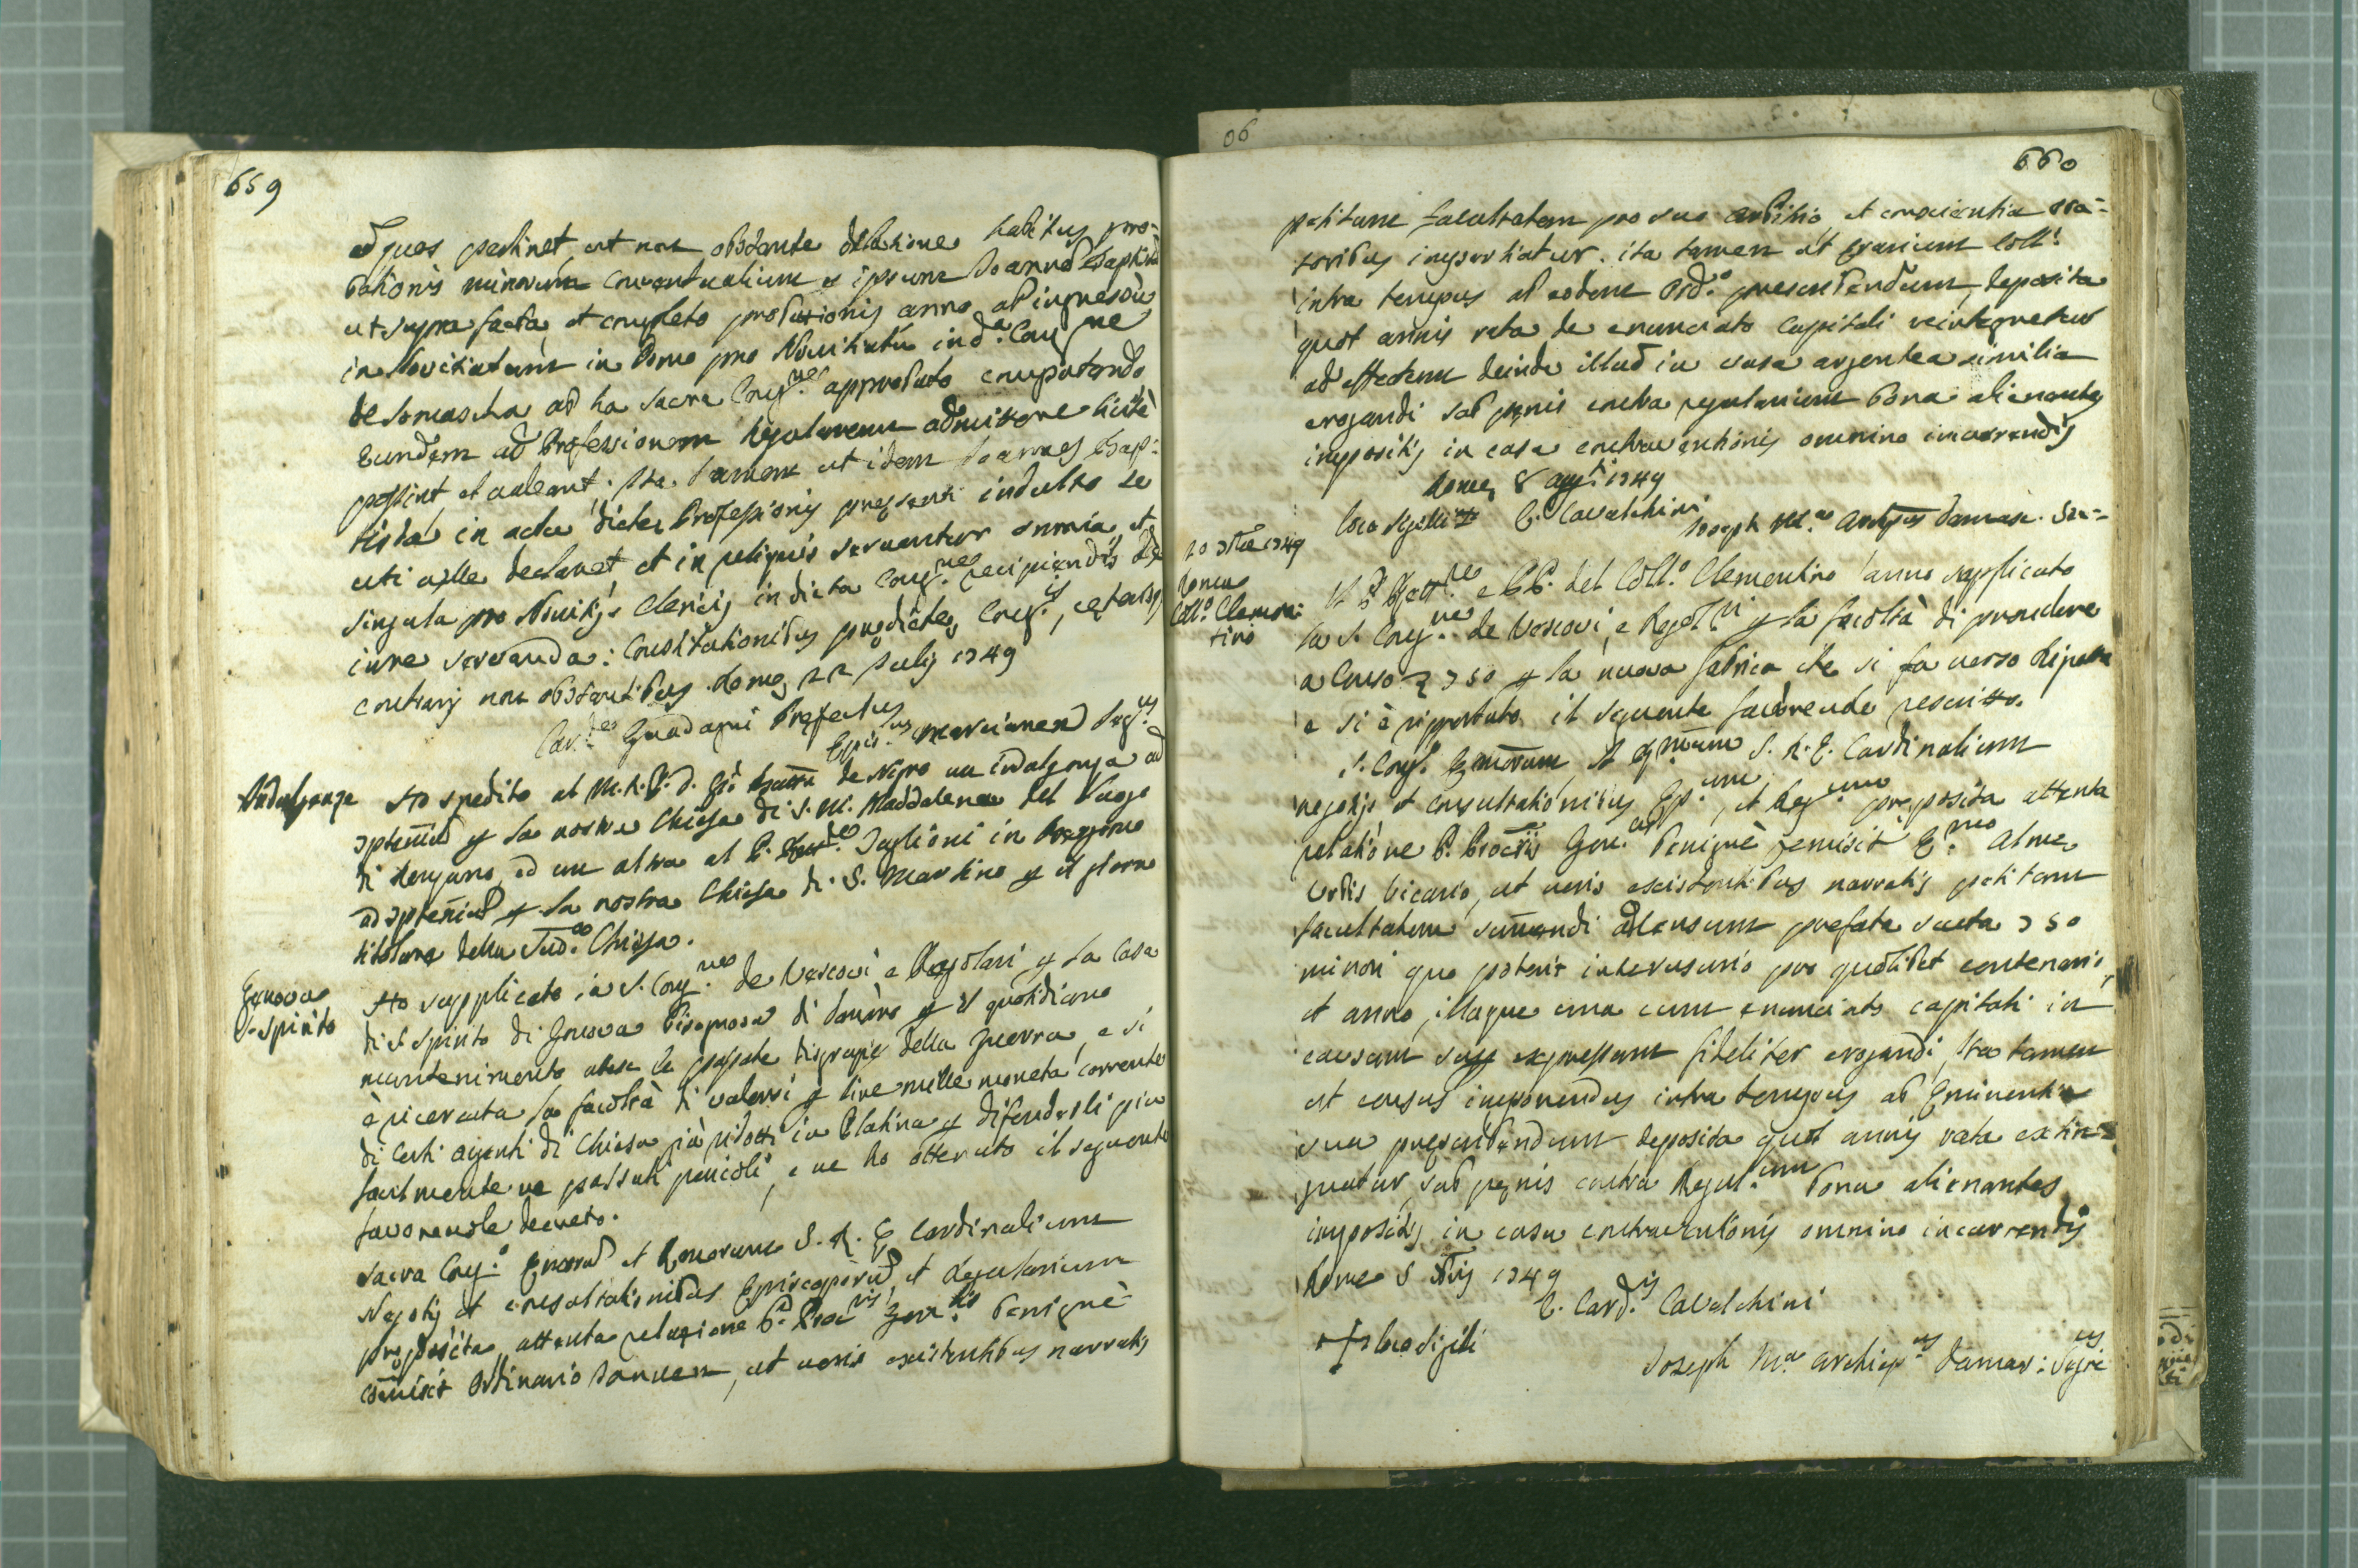 659
ad quos pertinet, ut non obstante delatione habitus pro=
bationis minorum conventualium per ipsum Joannem Baptistam
ut supra facta, et completo probationis anno ab ingressu
in Novitiatum in Domo pro Novitiatu in d.a Cong.ne
de Somascha ad ha Sacra Cong.ne approbato computando
Eundem ad Professionem Regularem admittere licitè
possint et valeant; ita tamen ut idem Joannes Bap=
tista in actu dictae Professionis praesenti indulto se
uti velle declaret, et in reliquis serventur omnia, et
singula pro Novitijs Clericis in dicta Cong.ne recipiendis de
iure servanda: Constitutionibus praedictae Cong.is, ceterisq
contrarijs non obstantibus. Romae 22 Julij 1749
Car.les Guadagni Praefectus
Epis.us Marcianen Seg.us
Indulgenze
Ho spedito al M.R.P.D. Gio Batta de Nigro un indulgenza ad
septenniu p la nostra Chiesa di S. M. Maddalena del luogo
di , ed un altra al P. Taglioni in
ad septenniu p la nostra Chiesa di S. Martino p il giorno
titolare della Sud.a Chiesa.
Genova
S. Spirito
Ho supplicato in S. Cong.ne de Vescovi e Regolari p la Casa
di S. Spirito di Genova bisognosa di danaro p il quotidiano
mantenimento atese le passate disgrazie della guerra, e si
è ricercata la facoltà di valersi p lire mille moneta corrente
di certi argenti di Chiesa già ridotti in Platina p difenderli piu
facilmente ne passati pericoli, e ne ho ottenuto il seguente
favorevole decreto.
Sacra Cong.o Emorum et Rmorum S. R. E. Cardinalium
Negotijs et consultationibus Episcoporum, et Regularium
praeposita, attenta relazione P. Proc.ris Gen.lis benignè
comisit Ordinario Januen, ut veris existentibus narratis
06
660
petitam facultatem pro suo arbitrio et conscientia ora=
toribus impertiatur. ita tamen ut Erarium Coll.
intra tempus ab eodem Ord.o praescribendum, deposita
quot annis rata de enunciato Capitali reintegretur
ad effectum deinde illud in vasa argentea similia
erogandi sub poenis contra regularium bona alienantes
impositis in casu contraventionis omnino incurrendis
Romae 8 Aug.ti 1749
loco sigilli C. Cavalchini
Joseph M.a Archiepus Damasc. Sec=
10 1749
Roma
Coll.o Clemen:
tino
Il P. Rett.re e PP. del Coll.o Clementino anno supplicato
la S. Cong.ne de Vescovi, e Regol.ri p la facoltà di prendere
a Censo 750 p la nuova fabrica che si fa verso Ripetta
e si è riportato il seguente favorevole rescritto.
S. Cong. Emorum, et Rmorum S. R. E. Cardinalium
negotijs et consultationibus Ep.um, et Reg.um praeposita attenta
relatione P. Procris Gen.lis benignè remisit E.mo Almae
Urbis Vicario, ut veris existentibus narratis petitam
facultatem sumendi ad Censum prefata scuta 750
minori quo poterit interusurio pro quolibet centenario,
et anno, illaque una cum enunciato capitali in
causam supra expressam fideliter erogandi, ita tamen
ut census imponendus intra tempus ab Eminentia
sua praescribendum deposita quot annis rata extin=
guatur, sub poenis contra Regul.ium bona alienantes
impositis in casu contraventionis omnino incurrendis
Romae 5 1749
C. Card.is Cavalchini
+ loco sigilli
Joseph M.a Archiep.us Damas: Sec.us